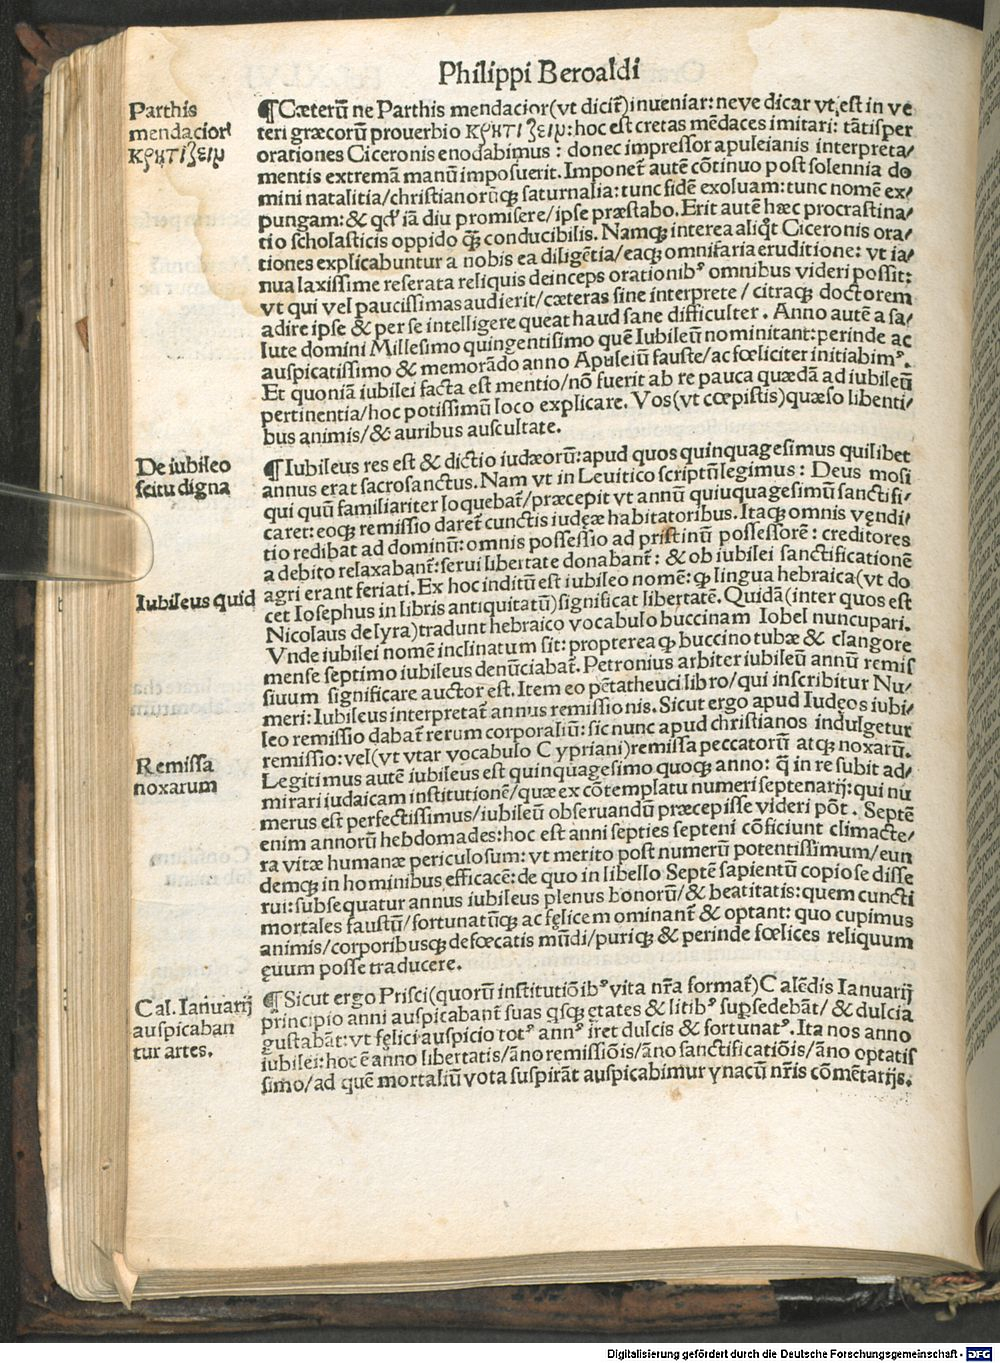 Philippi Beroaldi
Parthis
mendacior
κρητίζειν
¶Cæterũ ne Parthis mendacior(vt dicit̃)inueniar: neve dicar vt,est in ve
teri græcorũ prouerbio κρητίζειν: hoc est cretas mẽdaces imitari: tãtisper
orationes Ciceronis enodabimus : donec impressor apuleianis interpreta/
mentis extremã manũ imposuerit. Imponet̃ autẽ cõtinuo post solennia do
mini natalitia/christianorũqꝫ saturnalia: tunc fidẽ exoluam: tunc nomẽ ex/
pungam: & qd' iã diu promisere/ipse præstabo. Erit autẽ hæc procrastina/
tio scholasticis oppido q̃ꝫ conducibilis. Namqꝫ interea aliqt̃ Ciceronis ora/
tiones explicabuntur a nobis ea diligẽtia/eaqꝫ omnifaria eruditione: vt ia/
nua laxissime reserata reliquis deinceps orationibꝰ omnibus videri possit:
vt qui vel paucissimas audierit/cæteras sine interprete / citraqꝫ doctorem
adire ipse & per se intelligere queat haud sane difficulter. Anno autẽ a sa/
lute domini Millesimo quingentisimo quẽ Iubileũ nominitant: perinde ac
auspicatissimo & memorãdo anno Apuleiũ fauste/ac fœliciter initiabimꝰ.
Et quoniã iubilei facta est mentio/nõ fuerit ab re pauca quædã ad iubileũ
pertinentia/hoc potissimũ loco explicare. Vos(vt cœpistis)quæso libenti/
bus animis/& auribus auscultate.
De iubileo
scitu digna
¶Iubileus res est & dictio iudæorũ: apud quos quinquagesimus quilibet
annus erat sacrosanctus. Nam vt in Leuitico scriptũ legimus : Deus mosi
qui quũ familiariter loquebat̃/præcepit vt annũ quiuquagesimũ sanctifi/
caret: eoqꝫ remissio daret̃ cunctis iudeæ habitatoribus. Itaqꝫ omnis vendi/
tio redibat ad dominũ: omnis possessio ad pristinũ possessorẽ : creditores
a debito relaxabant̃: serui libertate donabant̃ : & ob iubilei sanctificationẽ
agri erant feriati. Ex hoc inditũ est iubileo nomẽ: ꝙ lingua hebraica(vt do
Iubileus quid
cet Iosephus in libris antiquitatũ)significat libertatẽ. Quidã(inter quos est
Nicolaus de lyra)tradunt hebraico vocabulo buccinam Iobel nuncupari.
Vnde iubilei nomẽ inclinatum sit: propterea ꝙ buccino tubæ & clangore
mense septimo iubileus denũciabat̃. Petronius arbiter iubileũ annũ remis
siuum significare auctor est. Item eo pẽtatheuci libro/qui inscribitur Nu/
meri: Iubileus interpretat̃ annus remissionis. Sicut ergo apud Iudeos iubi/
leo remissio dabat̃ rerum corporaliũ: sic nunc apud christianos indulgetur
remissio: vel(vt vtar vocabulo Cypriani)remissa peccatorũ atqꝫ noxarũ.
Remissa
noxarum
Legitimus autẽ iubileus est quinquagesimo quoqꝫ anno: q̃ in re subit ad/
mirari iudaicam institutionẽ/quæ ex cõtemplatu numeri septenarij: qui nu
merus est perfectissimus/iubileũ obseruandũ præcepisse videri põt. Septẽ
enim annorũ hebdomades: hoc est anni septies septeni cõficiunt climacte/
ra vitæ humanæ periculosum: vt merito post numerũ potentissimum/eun
demqꝫ in hominibus efficacẽ: de quo in libello Septẽ sapientũ copiose disse
rui: subsequatur annus iubileus plenus bonorũ/& beatitatis: quem cuncti
mortales faustũ/fortunatũqꝫ ac fęlicem ominant̃ & optant: quo cupimus
animis/corporibusqꝫ defœcatis mũdi/puriqꝫ & perinde fœlices reliquum
ęuum posse traducere.
Cal. Ianuarij
auspicaban
tur artes.
¶Sicut ergo Prisci(quorũ institutiõibꝰ vita nr̃a format̃)Calẽdis Ianuarij
principio anni auspicabant̃ suas qsqꝫ ętates & litibꝰ sup̃sedebãt/ & dulcia
gustabãt: vt fęlici auspicio totꝰ annꝰ iret dulcis & fortunatꝰ. Ita nos anno
iubilei: hoc ẽ anno libertatis/ãno remissiõis/ãno sanctificatiõis/ãno optatis
simo/ad quẽ mortaliũ vota suspirãt auspicabimur ynacũ nr̃is cõmẽtarijs.
Digitalisierung gefördert durch die Deutsche Forschungsgemeinschaft - DFG